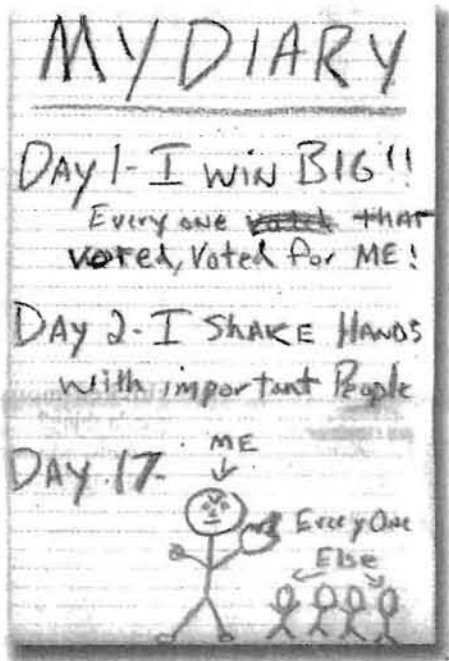 MY DIARY
DAY 1 - I WIN BIG!!
Every one voted that
voted, Voted for ME!
DAY 2 - I SHAKE HANDS
With important People
DAY 17-
ME
Every One
Else